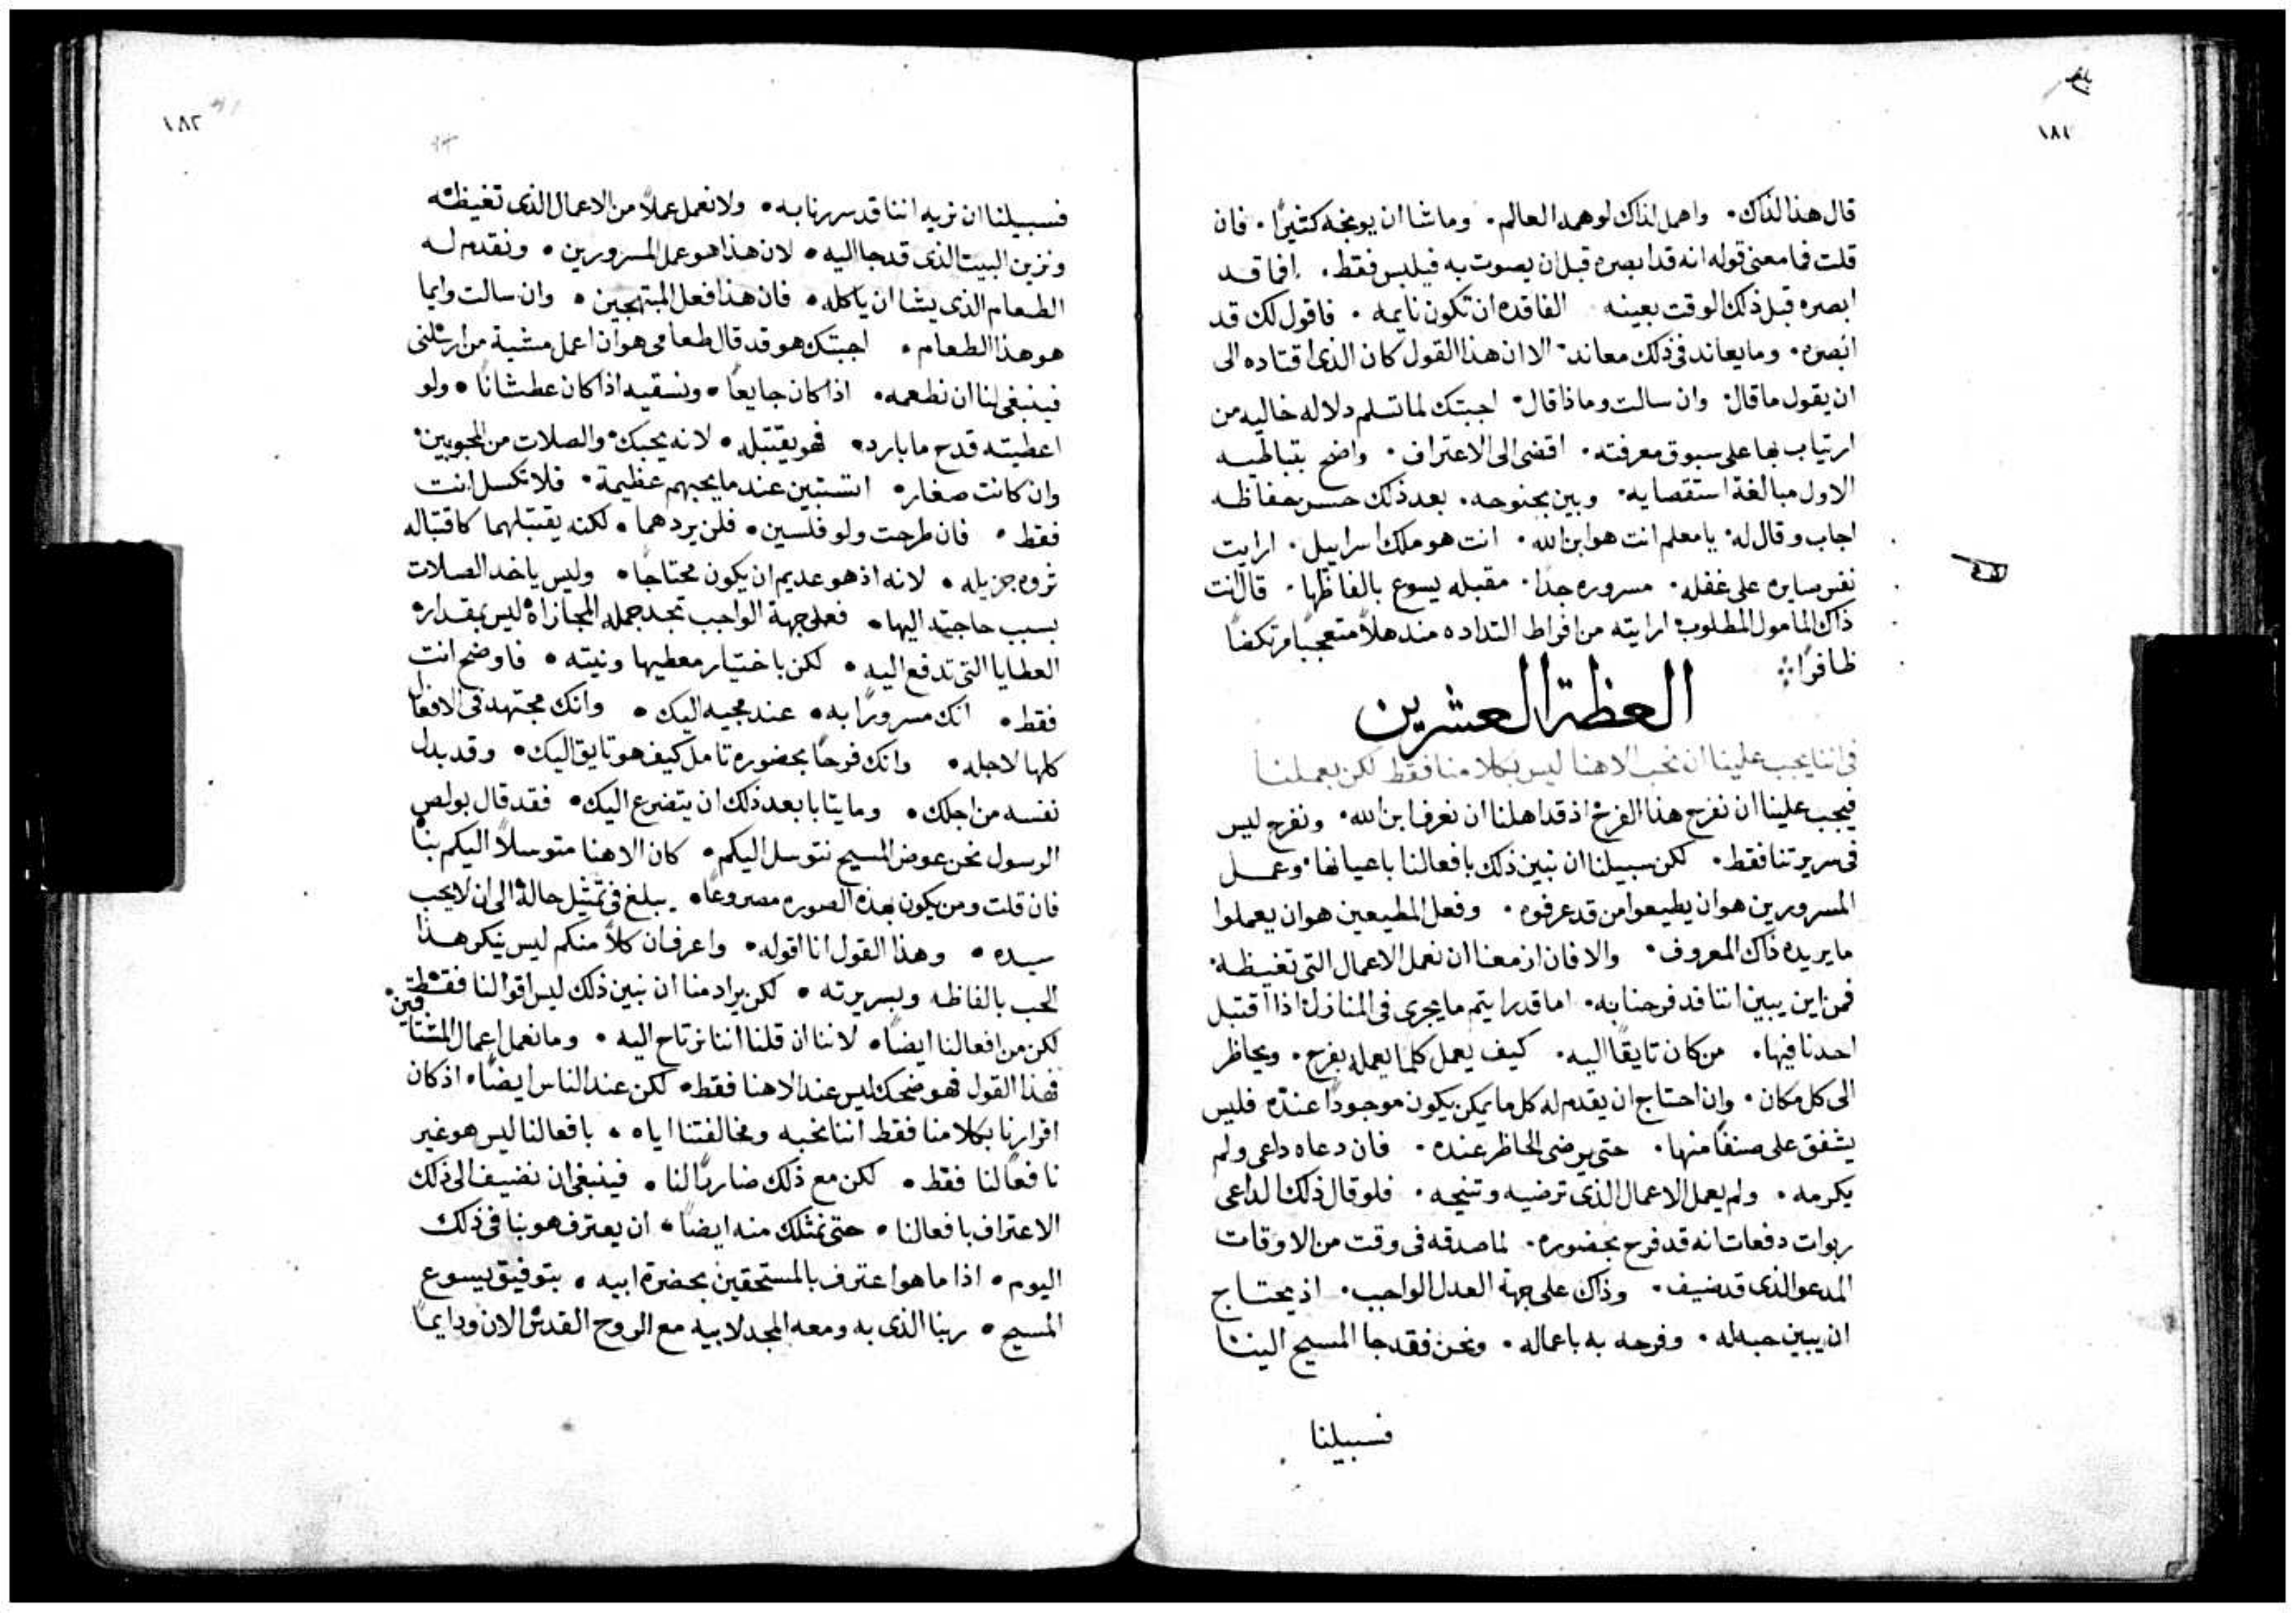 ١٨١
قال هذا لذاك. واهمل لذاك لوهمه العالم. وما شا ان يوبخه كثيرًا. فان
قلت فما معنى قوله انه قد ابصره قبل ان يصوت به فيلبس فقط. افما قد
ابصره قبل ذلك الوقت بعينه الفاقده ان تكون نايمه. فاقول لك قد
ابصره. وما يعاند فى ذلك معاند. الا ان هذا القول كان الذى اقتاده الى
ان يقول ما قال. وان سالت وماذا قال. اجبتك لما تسلم دلاله خاليه من
ارتياب بها على سبوق معرفته. افضى الى الاعتراف. واضح بتباطيه
الاول مبالغة استقصايه. وبين بجنوحه. بعد ذلك حسن حفاظه
اجاب وقال له. يا معلم انت هو ابن الله. انت هو ملك اسراييل. ارايت
نفس سايره على غفله. مسروره جدًا. مقبله يسوع بالفاظها. قال انت
ذاك المامول المطلوب. ارايته من افراط التداده مندهلاً متعجبًا مرتكضًا
ظافرًا
العظة العشرين
فى اننا يجب علينا ان نحب الاهنا ليس بكلامنا فقط لكن بعملنا
فيجب علينا ان نفرح هذا الفرح اذ قد اهلنا ان نعرف ابن الله. ونفرح ليس
فى سريرتنا فقط. لكن سبيلنا ان نبين ذلك بافعالنا باعيانها. وعمل
المسرورين هو ان يطيعوا من قد عرفوه. وفعل المطيعين هو ان يعملوا
ما يريده ذاك المعروف. والا فان ازمعنا ان نعمل الاعمال التى تغيظه.
فمن اين يبين اننا قد فرحنا به. اما قد رايتم ما يجرى فى المنازل. اذا اقتبل
احدنا فيها. من كان تايقًا اليه. كيف يعمل كلما يعمله بفرح. ويحاظر
الى كل مكان. وان احتاج ان يقدم له كل ما يمكن يكون موجودًا عنده. فليس
يشفق على صنفًا منها. حتى يرضى الحاظر عنده. فان دعاه داعى ولم
يكرمه. ولم يعمل الاعمال الذى ترضيه وتنيحه. فلو قال ذلك الداعى
ربوات دفعات انه قد فرح بحضوره. لما صدقه فى وقت من الاوقات
المدعو الذى قد ضيف. وذاك على جهة العدل الواجب. اذ يحتاج
ان يبين حبه له. وفرحه به باعماله. ونحن فقد جا المسيح الينا
فسبيلنا
١٨٢
فسبيلنا ان نريه اننا قد سررنا به. ولا نعمل عملاً من الاعمال الذى تغيظه
ونزين البيت الذى قد جا اليه. لان هذا هو عمل المسرورين. ونقدم له
الطعام الذى يشا ان ياكله. فان هذا فعل المبتهجين. وان سالت وايما
هو هذا الطعام. اجبتك هو قد قال طعامى هو ان اعمل مشية من ارسلنى
فينبغى لنا ان نطعمه. اذا كان جايعًا. ونسقيه اذا كان عطشانًا. ولو
اعطيته قدح ما بارد. فهو يقتبله. لانه يحبك. والصلات من المحبوبين.
وان كانت صغاره استبين عند ما يحبهم عظيمة. فلا تكسل انت
فقط. فان طرحت ولو فلسين. فلن يردهما. لكنه يقتبلهما كاقتباله
ثروه جزيله. لانه اذ هو عديم ان يكون محتاجًا. وليس ياخد الصلات
بسبب حاجته اليها. فعلى جهة الواجب تجد جملة المجازاة ليس بمقداره
العطايا التى تدفع اليه. لكن باختيار معطيها ونيته. فاوضح انت
فقط. انك مسرورًا به. عند مجيه اليك. وانك مجتهد فى الافعال
كلها لاجله. وانك فرحًا بحضوره تامل كيف هو تايق اليك. وقد بدل
نفسه من اجلك. وما يتابا بعد ذلك ان يتضرع اليك. فقد قال بولص
الرسول نحن عوض المسيح نتوسل اليكم. كان الاهنا متوسلاً اليكم بنا
فان قلت ومن يكون بهذه الصوره مصروعًا. يبلغ فى تمثيل حاله الى ان لا يحب
سيده. وهذا القول انا اقوله. واعرف ان كلاً منكم ليس ينكر هذا
الحب بالفاظه وبسريرته. لكن يراد منا ان نبين ذلك ليس اقوالنا فقط
لكن من افعالنا ايضًا. لاننا ان قلنا اننا نرتاح اليه. وما نعمل اعمال المشتاقين.
فهذا القول فهو ضحك ليس عند الاهنا فقط. لكن عند الناس ايضًا. اذ كان
اقرارنا بكلامنا فقط اننا نحبه ومخالفتنا اياه. بافعالنا ليس هو غير
نافعًا لنا فقط. لكن مع ذلك ضاربًا لنا. فينبغى ان نضيف الى ذلك
الاعتراف بافعالنا. حتى نمثلك منه ايضًا. ان يعترف هو بنا فى ذلك
اليوم. اذا ما هو اعترف بالمستحقين بحضرة ابيه. بتوفيق يسوع
المسيح. ربنا الذى به ومعه المجد لابيه مع الروح القدس الان ودايمًا